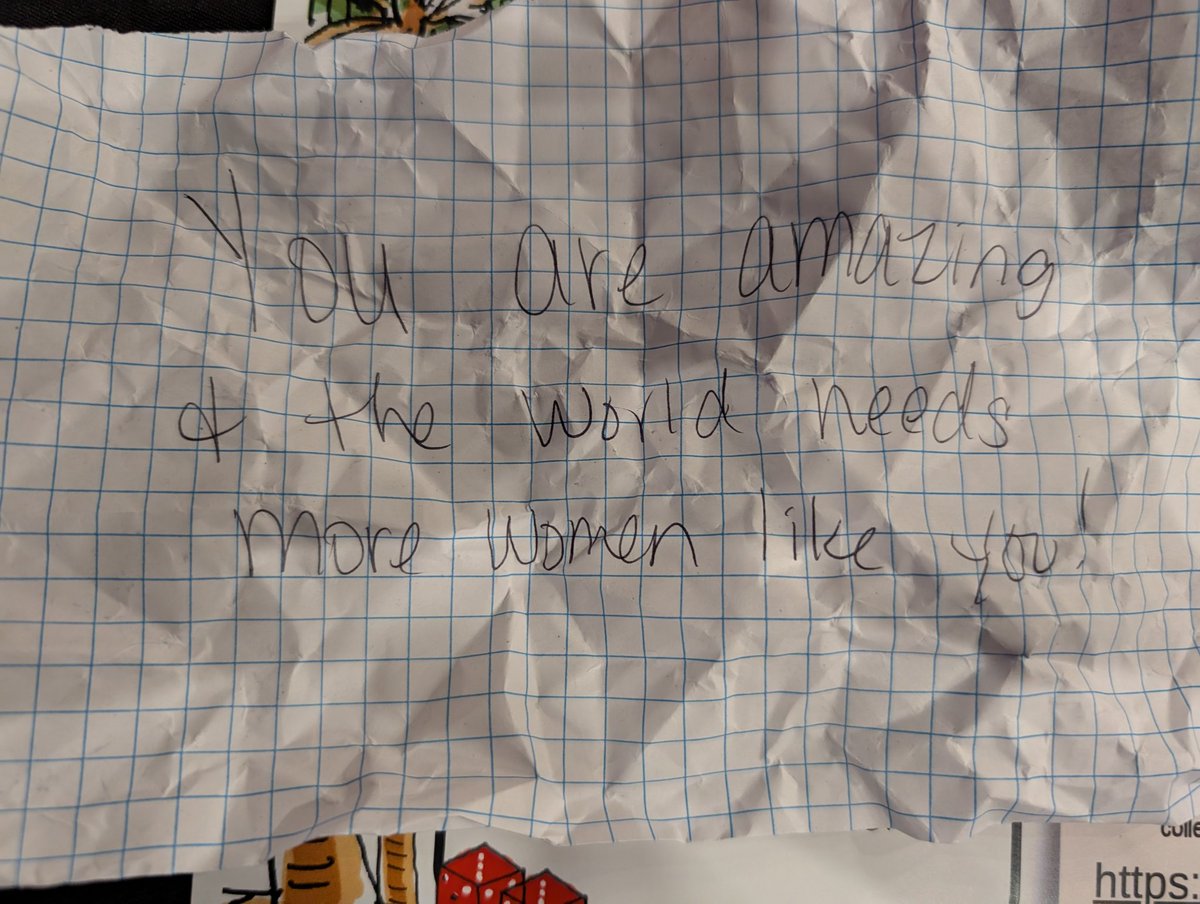 You are amazing
& the world needs
more women like you!
colle
https: